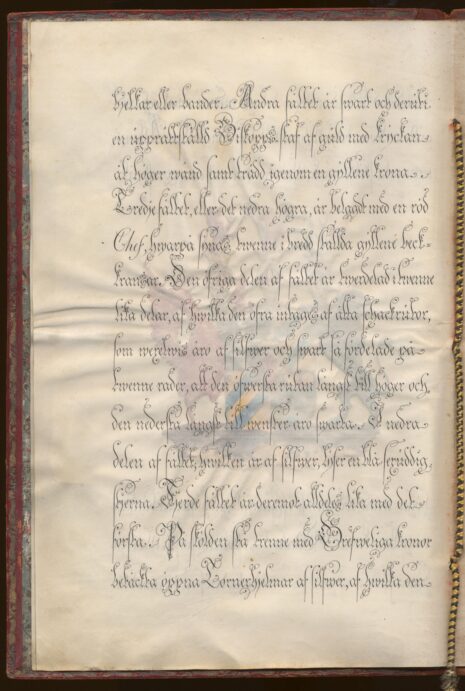 bjelkar eller bander. Andra fältet är svart och deruti
en upprättstäld Biskopps staf af guld med kryckan
åt höger wänd samt trädd igenom en gyllene krona.
Tredje fältet, eller det nedra högra, är belagdt med en röd
Chef, hwarpå synas twenne i bredd ställda gyllene beck-
kransar. Den öfriga delen af fältet är twerdelad i twenne
lika delar, af hwilka den öfra intages af åtta schackrutor,
som wexelwis äro af silfwer och swart så fördelade på
twenne rader, att den öfwersta rutan längst till höger och
den nedersta längst till wenster äro swarta. I nedra
delen af fältet, hwilken är af silfwer, lyser en blå sexuddig
stjerna. Fjerde fältet är deremot alldeles lika med det
första. På skölden stå trenne med Grefweliga kronor
betäckta öppna Tornerhjelmar af silfwer, af hwilka den